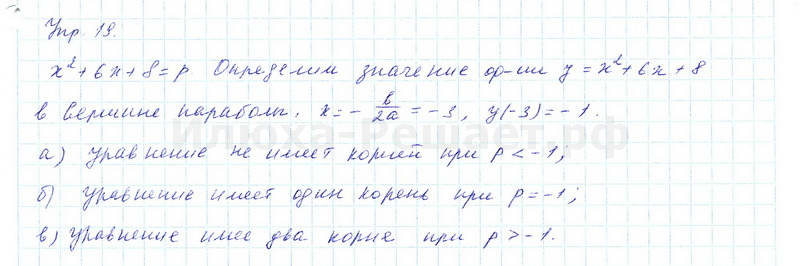 Упр. 19.
x²+6x+8=p Определим значение ф-ии y=x²+6x+8
в вершине параболы. x=-b/2a=-3, y(-3)=-1.
Илюха-Решает.рф
а) уравнение не имеет корней при p<-1;
б) уравнение имеет один корень при p=-1;
в) уравнение имее два корня при p>-1.